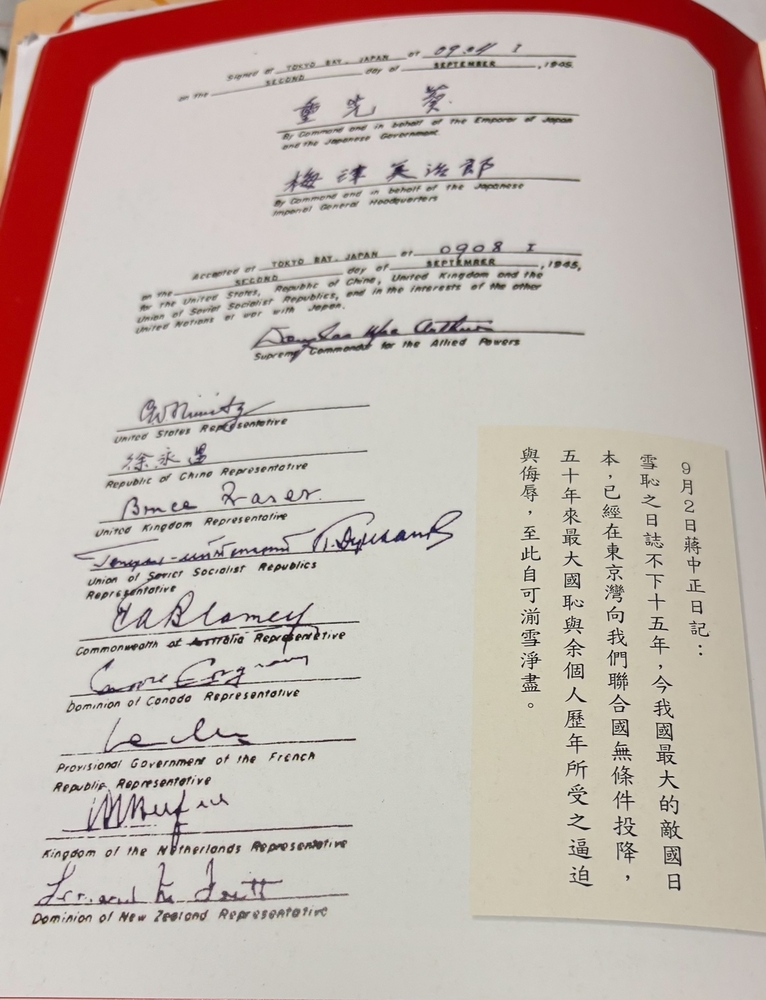 Signed at TOKYO BAY, JAPAN at 09.04 I
on the SECOND day of SEPTEMBER, 1945.
重光葵
By Command and in behalf of the Emperor of Japan
and the Japanese Government.
梅津美治郎
By Command and in behalf of the Japanese
Imperial General Headquarters
Accepted at TOKYO BAY, JAPAN at 0908 I
on the SECOND day of SEPTEMBER, 1945,
for the United States, Republic of China, United Kingdom and the
Union of Soviet Socialist Republics, and in the interests of the other
United Nations at war with Japan.
Douglas MacArthur
Supreme Commander for the Allied Powers
CW Nimitz
United States Representative
徐永昌
Republic of China Representative
Bruce Fraser
United Kingdom Representative
Union of Soviet Socialist Republics
Representative
T A Blamey
Commonwealth of Australia Representative
Dominion of Canada Representative
Provisional Government of the French
Republic Representative
Kingdom of the Netherlands Representative
Dominion of New Zealand Representative
9月2日蔣中正日記：
雪恥之日誌不下十五年，今我國最大的敵國日
本，已經在東京灣向我們聯合國無條件投降，
五十年來最大國恥與余個人歷年所受之逼迫
與侮辱，至此自可湔雪淨盡。